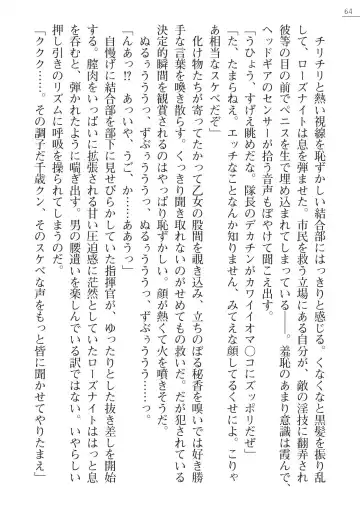 64
チリチリと熱い視線を恥ずかしい結合部にはっきりと感じる。くなくなと黒髪を振り乱
して、ローズナイトは息を弾ませた。市民を救う立場にある自分が、敵の淫技に翻弄され
彼等の目の前でペニスを生で埋め込まれてしまっている――。羞恥のあまり意識は霞んで、
ヘッドギアのセンサーが拾う音声もぼやけて聞こえ出す。
「うひょう、すげえ眺めだな。隊長のデカチンがカワイイオマ〇コにズッポリだぜ」
「た、たまらねえ。エッチなことなんか知りません、みてえな顔してるくせに。こりゃ
あ相当なスケベだぞ」
化け物たちが寄ってたかって乙女の股間を覗き込み、立ちのぼる秘香を嗅いでは好き勝
手な言葉を喚き散らす。くっきり聞き取れないのがせめてもの救いだ。だが犯されている
決定的瞬間を観賞されるのはやっぱり恥ずかしい。顔が熱くて火を噴きそうだ。
ぬるぅうううっ、ずぷぅううっ、ぬるぅうううっ、ずぷぅううう……っ。
「んあっ⁉　あっ、うご、か……ああうっ」
自慢げに結合部を部下に見せびらかしていた指揮官が、ゆったりとした抜き差しを開始
する。膣肉をいっぱいに拡張される甘い圧迫感に茫然としていたローズナイトははっと息
を呑むと、弾かれたように喘ぎ出す。男の腰遣いを楽しんでいる訳ではない。いやらしい
押し引きのリズムに呼吸を操られてしまうのだ。
「ククク……。その調子だ千歳クン、そのスケベな声をもっと皆に聞かせてやりたまえ」